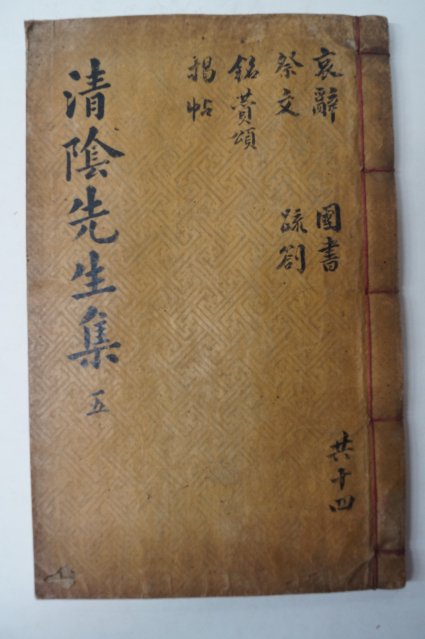 共十四
哀辭 國書
祭文 疏箚
銘贊頌
揭帖
清陰先生集 五